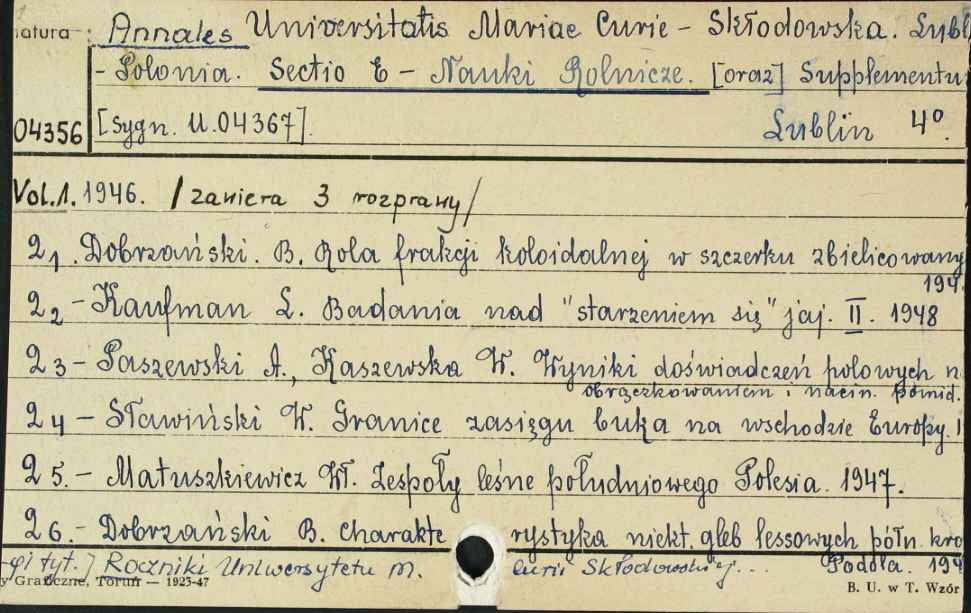 iatura : Annales Universitatis Mariae Curie - Skłodowska. Lubl
- Polonia. Sectio E - Nauki Rolnicze. [oraz] Supplementu
04356 [sygn. U.04367]. Lublin 4°.
Vol.1. 1946. /zawiera 3 rozprawy/
2 1. Dobrzański. B. Rola frakcji koloidalnej w szczerku zbielicowany
194.
2 2 - Kaufman L. Badania nad "starzeniem się" jaj. II. 1948
2 3 - Paszewski A., Kaszewska W. Wyniki doświadczeń polowych n
obrączkowaniem i nacin. pomid.
2 4 - Sławiński W. Granice zasięgu buka na wschodzie Europy. 1
2 5. - Matuszkiewicz Wł. Zespoły leśne południowego Polesia. 1947.
2 6. - Dobrzański B. Charakte rystyka niekt. gleb lessowych półn. kra
Podola. 194
pi tyt.] Roczniki Uniwersytetu M. Curii Skłodowskiej...
y Graficzne, Toruń — 1923-47 B. U. w T. Wzór